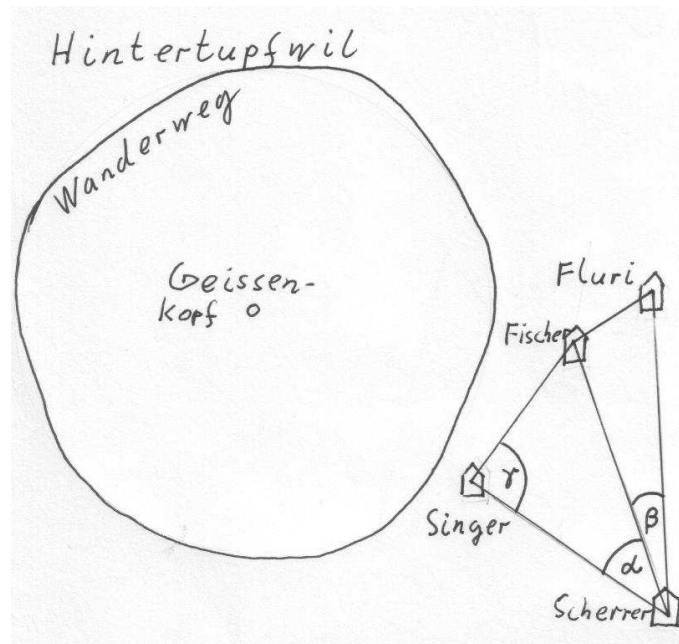 Hintertupfwil
Wanderweg
Geissen-
kopf
Fluri
Fischer
γ
Singer
β
α
Scherrer